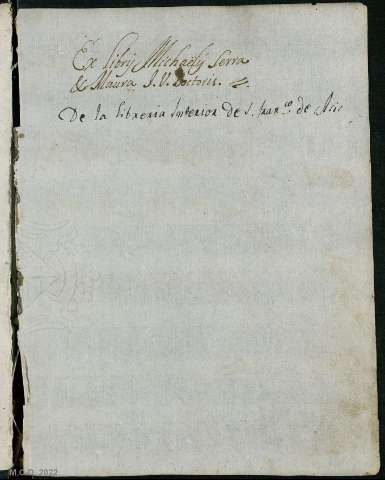 Ex Librijs Michaelis Serra
& Maura J. V. Doctoris.
De la libreria Interior de S. Fran.co de Asis
M.C.D. 2022